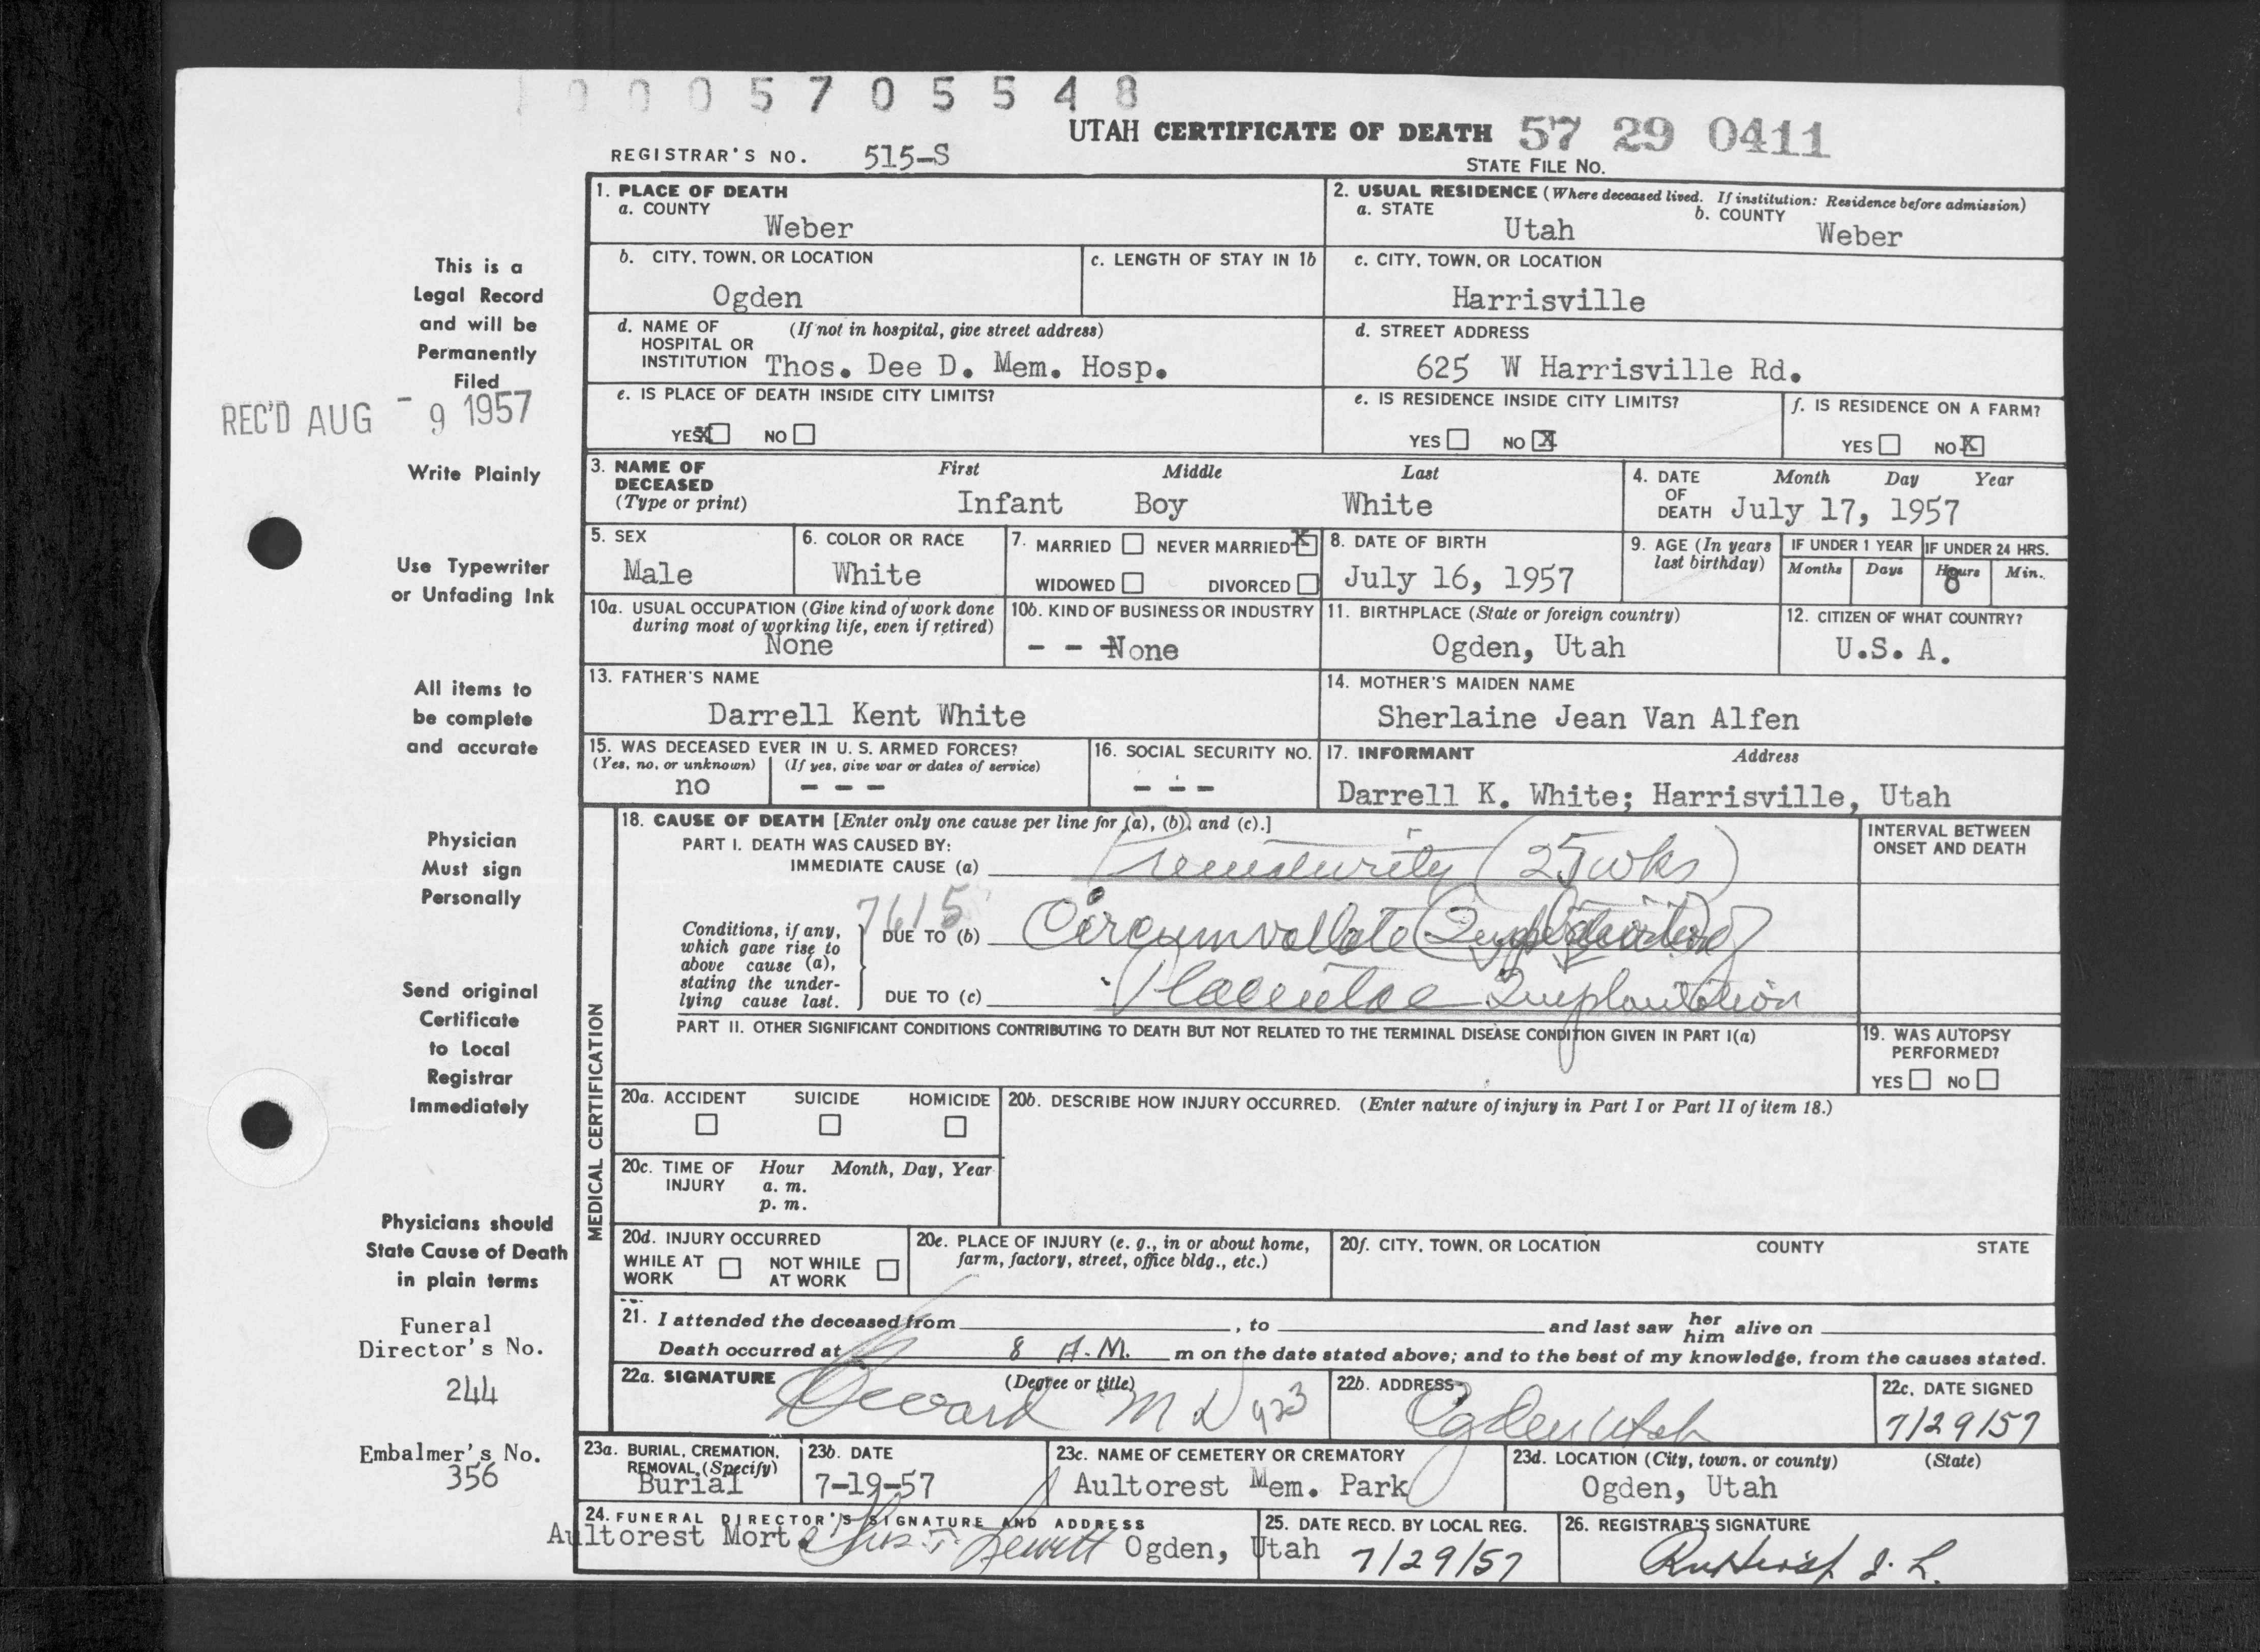 0 0 0 5 7 0 5 5 4 8
UTAH CERTIFICATE OF DEATH 57 29 0411
REGISTRAR'S NO. 515-S
STATE FILE NO.
1. PLACE OF DEATH
a. COUNTY
Weber
2. USUAL RESIDENCE (Where deceased lived. If institution: Residence before admission)
a. STATE
Utah
b. COUNTY
Weber
b. CITY, TOWN, OR LOCATION
Ogden
c. LENGTH OF STAY IN 1b
c. CITY, TOWN, OR LOCATION
Harrisville
d. NAME OF HOSPITAL OR INSTITUTION
(If not in hospital, give street address)
Thos. Dee D. Mem. Hosp.
d. STREET ADDRESS
625 W Harrisville Rd.
e. IS PLACE OF DEATH INSIDE CITY LIMITS?
YES X NO
e. IS RESIDENCE INSIDE CITY LIMITS?
YES NO X
f. IS RESIDENCE ON A FARM?
YES NO X
3. NAME OF DECEASED
(Type or print)
First Middle Last
Infant Boy White
4. DATE OF DEATH
Month Day Year
July 17, 1957
5. SEX
Male
6. COLOR OR RACE
White
7. MARRIED NEVER MARRIED X
WIDOWED DIVORCED
8. DATE OF BIRTH
July 16, 1957
9. AGE (In years last birthday)
IF UNDER 1 YEAR
Months Days
IF UNDER 24 HRS.
Hours Min.
8
10a. USUAL OCCUPATION (Give kind of work done during most of working life, even if retired)
None
10b. KIND OF BUSINESS OR INDUSTRY
- - -None
11. BIRTHPLACE (State or foreign country)
Ogden, Utah
12. CITIZEN OF WHAT COUNTRY?
U.S. A.
13. FATHER'S NAME
Darrell Kent White
14. MOTHER'S MAIDEN NAME
Sherlaine Jean Van Alfen
15. WAS DECEASED EVER IN U. S. ARMED FORCES?
(Yes, no, or unknown) (If yes, give war or dates of service)
no - - -
16. SOCIAL SECURITY NO.
- - -
17. INFORMANT Address
Darrell K. White; Harrisville, Utah
MEDICAL CERTIFICATION
18. CAUSE OF DEATH [Enter only one cause per line for (a), (b), and (c).]
PART I. DEATH WAS CAUSED BY:
IMMEDIATE CAUSE (a) Prematurity (25 wks)
INTERVAL BETWEEN ONSET AND DEATH
7615
Conditions, if any, which gave rise to above cause (a), stating the underlying cause last.
DUE TO (b) Circumvallate
DUE TO (c) Placentae Implantation
PART II. OTHER SIGNIFICANT CONDITIONS CONTRIBUTING TO DEATH BUT NOT RELATED TO THE TERMINAL DISEASE CONDITION GIVEN IN PART I(a)
19. WAS AUTOPSY PERFORMED?
YES NO
20a. ACCIDENT SUICIDE HOMICIDE
20b. DESCRIBE HOW INJURY OCCURRED. (Enter nature of injury in Part I or Part II of item 18.)
20c. TIME OF INJURY
Hour Month, Day, Year
a. m.
p. m.
20d. INJURY OCCURRED
WHILE AT WORK NOT WHILE AT WORK
20e. PLACE OF INJURY (e. g., in or about home, farm, factory, street, office bldg., etc.)
20f. CITY, TOWN, OR LOCATION COUNTY STATE
21. I attended the deceased from , to and last saw her him alive on
Death occurred at 8 A.M. m on the date stated above; and to the best of my knowledge, from the causes stated.
22a. SIGNATURE (Degree or title)
M D 923
22b. ADDRESS
Ogden Utah
22c. DATE SIGNED
7/29/57
23a. BURIAL, CREMATION, REMOVAL (Specify)
Burial
23b. DATE
7-19-57
23c. NAME OF CEMETERY OR CREMATORY
Aultorest Mem. Park
23d. LOCATION (City, town, or county) (State)
Ogden, Utah
24. FUNERAL DIRECTOR'S SIGNATURE AND ADDRESS
Aultorest Mort. Ogden, Utah
25. DATE RECD. BY LOCAL REG.
7/29/57
26. REGISTRAR'S SIGNATURE
This is a
Legal Record
and will be
Permanently
Filed
REC'D AUG - 9 1957
Write Plainly
Use Typewriter
or Unfading Ink
All items to
be complete
and accurate
Physician
Must sign
Personally
Send original
Certificate
to Local
Registrar
Immediately
Physicians should
State Cause of Death
in plain terms
Funeral
Director's No.
244
Embalmer's No.
356